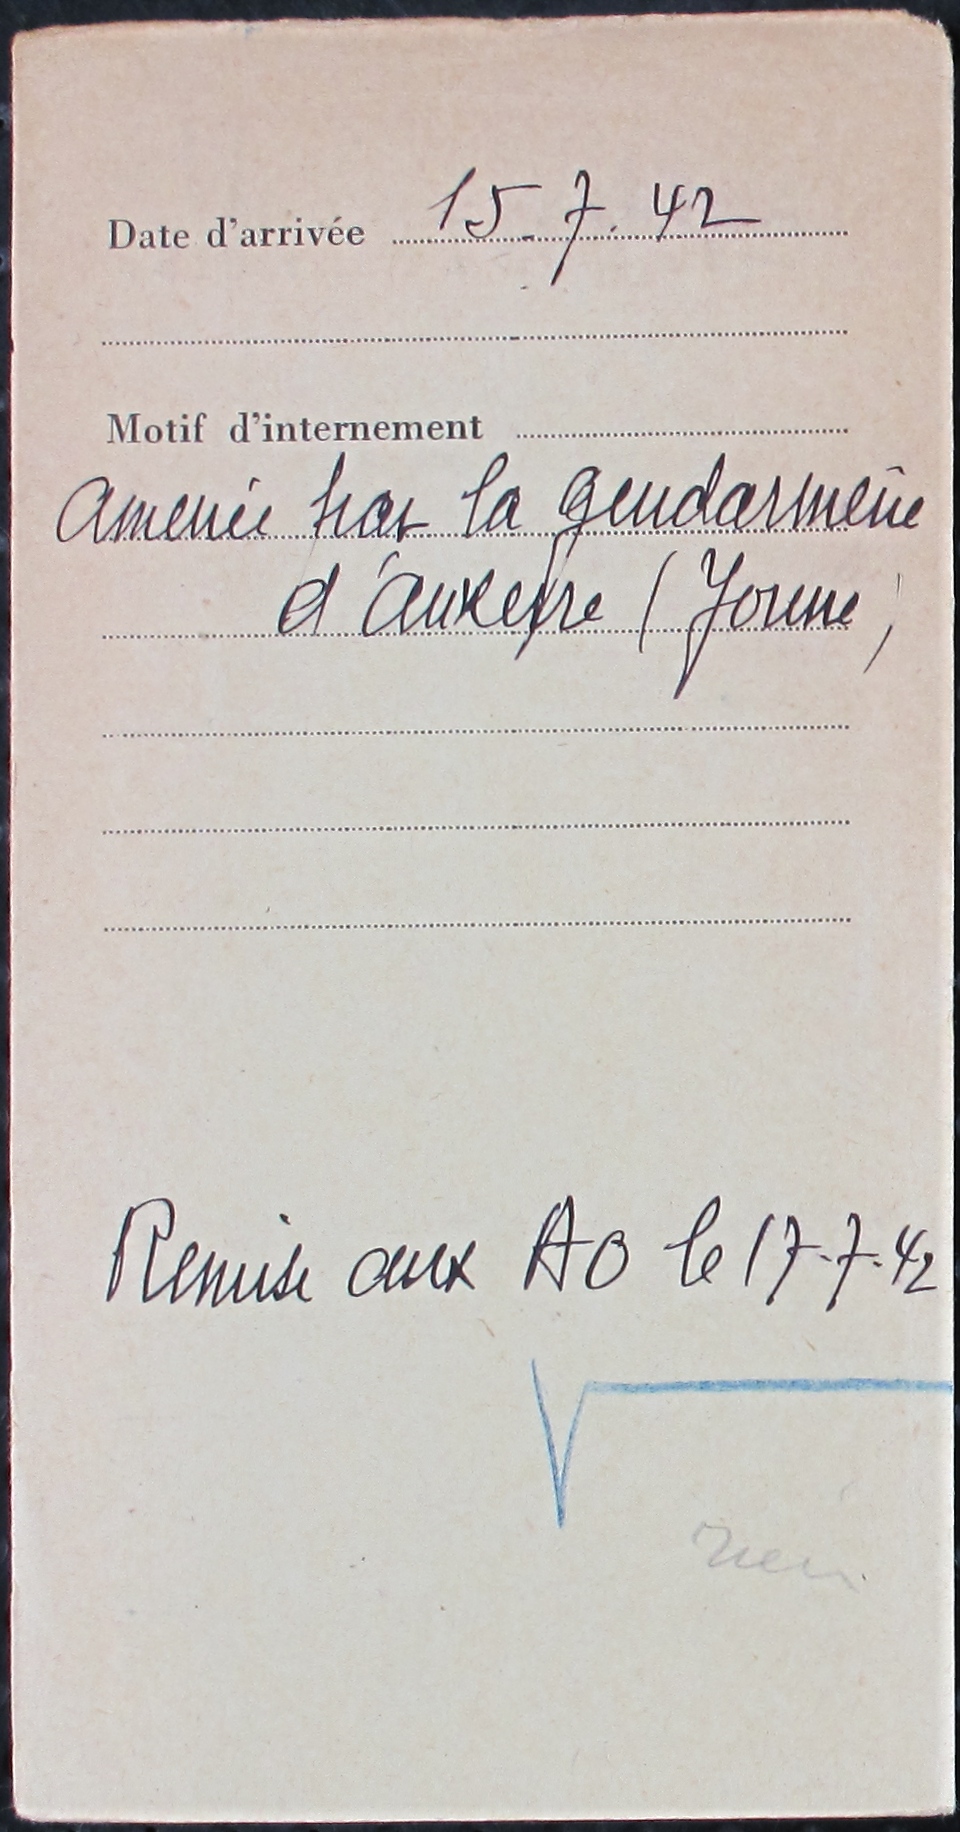 Date d'arrivée 15.7.42
Motif d'internement
Amenée par la gendarmerie
d'Auxerre (Yonne)
Remise aux AO le 17-7-42
rien